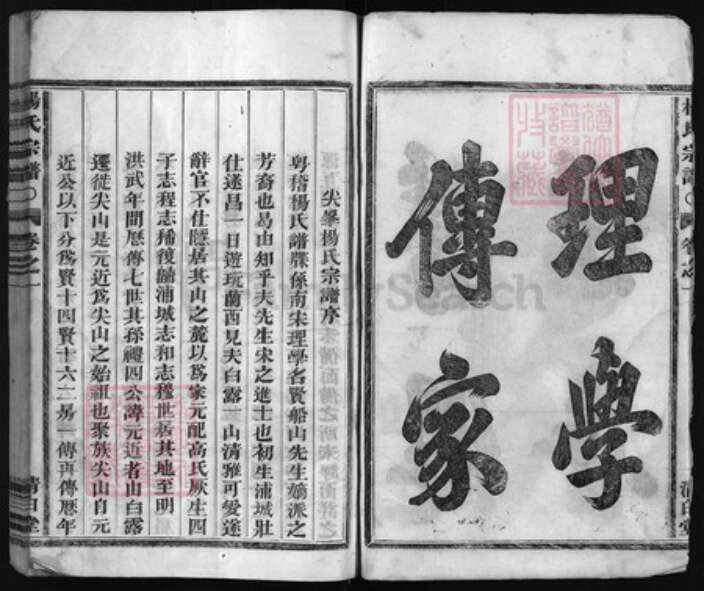 理學
傳家
清白堂
尖峯楊氏宗譜序
粵稽楊氏譜牒係南宋理學名賢船山先生嫡派之
芳裔也曷由知乎夫先生宋之進士也初生浦城壯
仕遂昌一日遊玩蘭西見夫白露一山清雅可愛遂
辭官不仕隱居其山之麓以爲家元配高氏厥生四
子志程志稀後歸浦城志和志穆世居其地至明
洪武年間歷傳七世其孫禮四公諱元近者山白露
遷徙尖山是元近爲尖山之始祖也聚族尖山自元
近公以下分爲賢十四賢十六二房一傳再傳歷年
楊氏宗譜
卷之一
清白堂